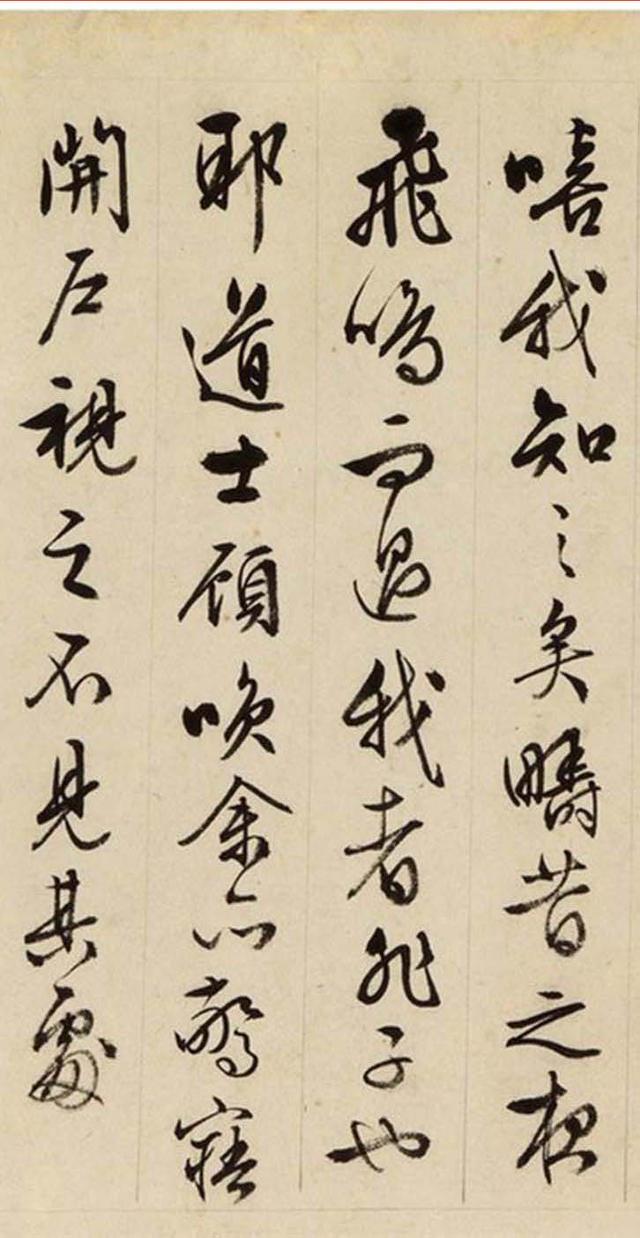 嘻我知之矣疇昔之夜
飛鳴而過我者非子也
耶道士顧咲余亦驚寤
開戶視之不見其處